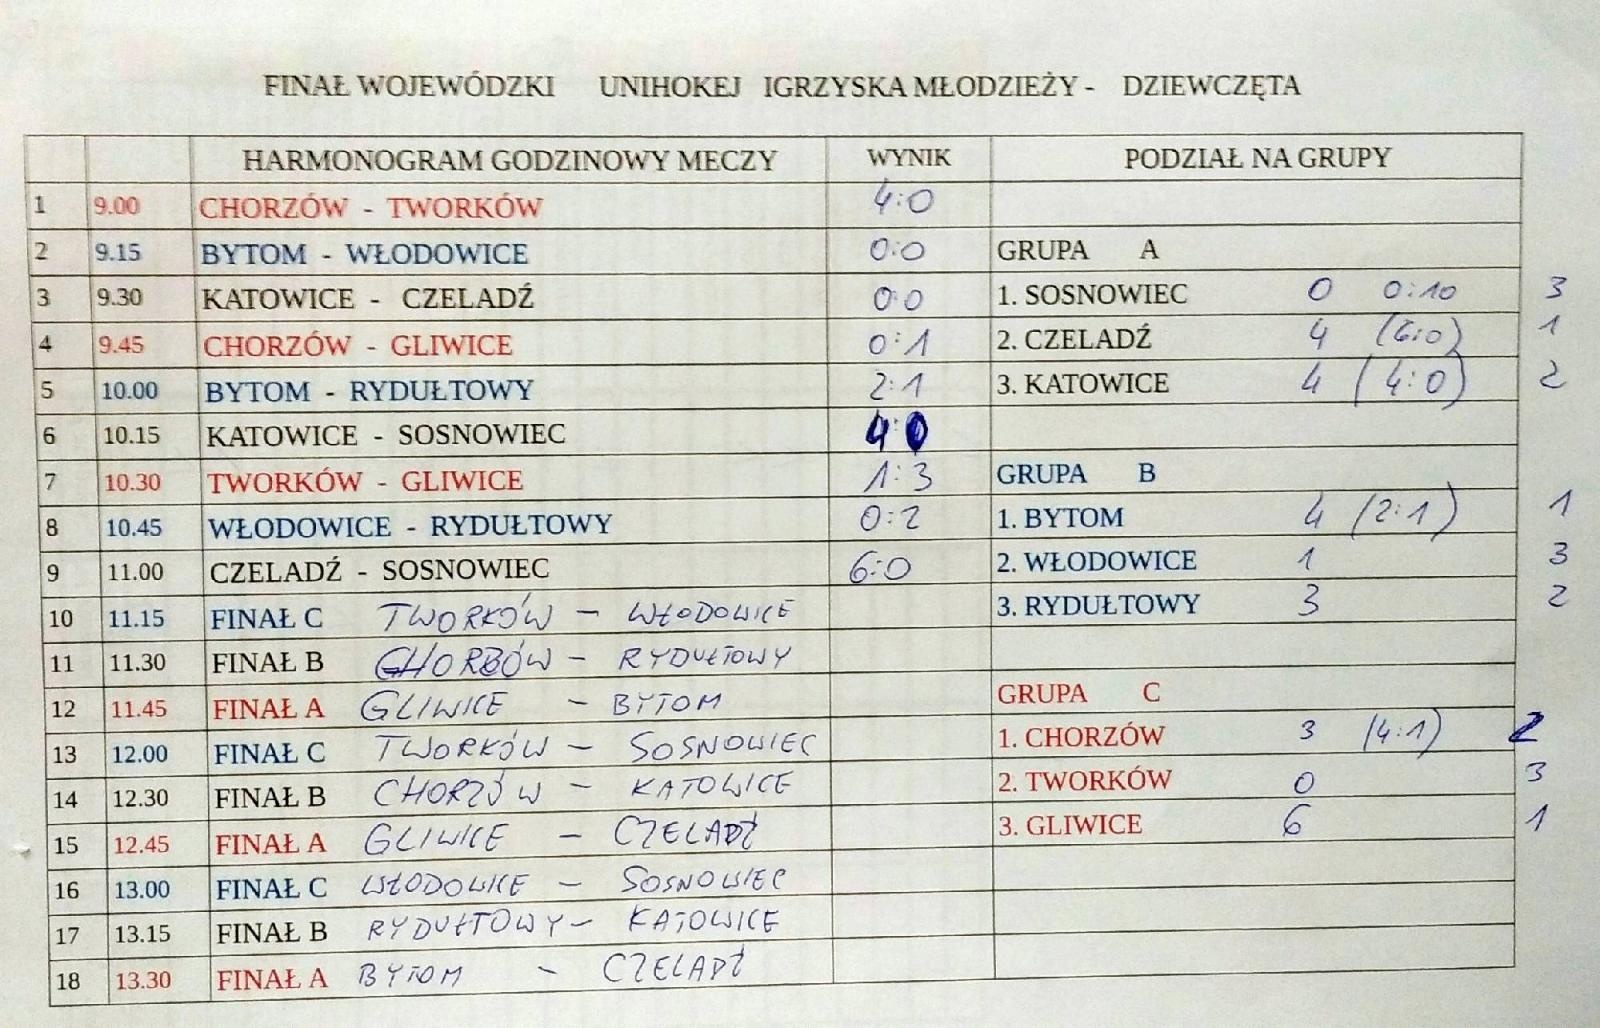 FINAŁ WOJEWÓDZKI UNIHOKEJ IGRZYSKA MŁODZIEŻY - DZIEWCZĘTA
HARMONOGRAM GODZINOWY MECZY WYNIK PODZIAŁ NA GRUPY
1 9.00 CHORZÓW - TWORKÓW 4:0
2 9.15 BYTOM - WŁODOWICE 0:0 GRUPA A
3 9.30 KATOWICE - CZELADŹ 0:0 1. SOSNOWIEC 0 0:10 3
4 9.45 CHORZÓW - GLIWICE 0:1 2. CZELADŹ 4 (6:0) 1
5 10.00 BYTOM - RYDUŁTOWY 2:1 3. KATOWICE 4 (4:0) 2
6 10.15 KATOWICE - SOSNOWIEC 4:0
7 10.30 TWORKÓW - GLIWICE 1:3 GRUPA B
8 10.45 WŁODOWICE - RYDUŁTOWY 0:2 1. BYTOM 4 (2:1) 1
9 11.00 CZELADŹ - SOSNOWIEC 6:0 2. WŁODOWICE 1 3
10 11.15 FINAŁ C TWORKÓW - WŁODOWICE 3. RYDUŁTOWY 3 2
11 11.30 FINAŁ B CHORZÓW - RYDUŁTOWY
12 11.45 FINAŁ A GLIWICE - BYTOM GRUPA C
13 12.00 FINAŁ C TWORKÓW - SOSNOWIEC 1. CHORZÓW 3 (4:1) 2
14 12.30 FINAŁ B CHORZÓW - KATOWICE 2. TWORKÓW 0 3
15 12.45 FINAŁ A GLIWICE - CZELADŹ 3. GLIWICE 6 1
16 13.00 FINAŁ C WŁODOWICE - SOSNOWIEC
17 13.15 FINAŁ B RYDUŁTOWY - KATOWICE
18 13.30 FINAŁ A BYTOM - CZELADŹ